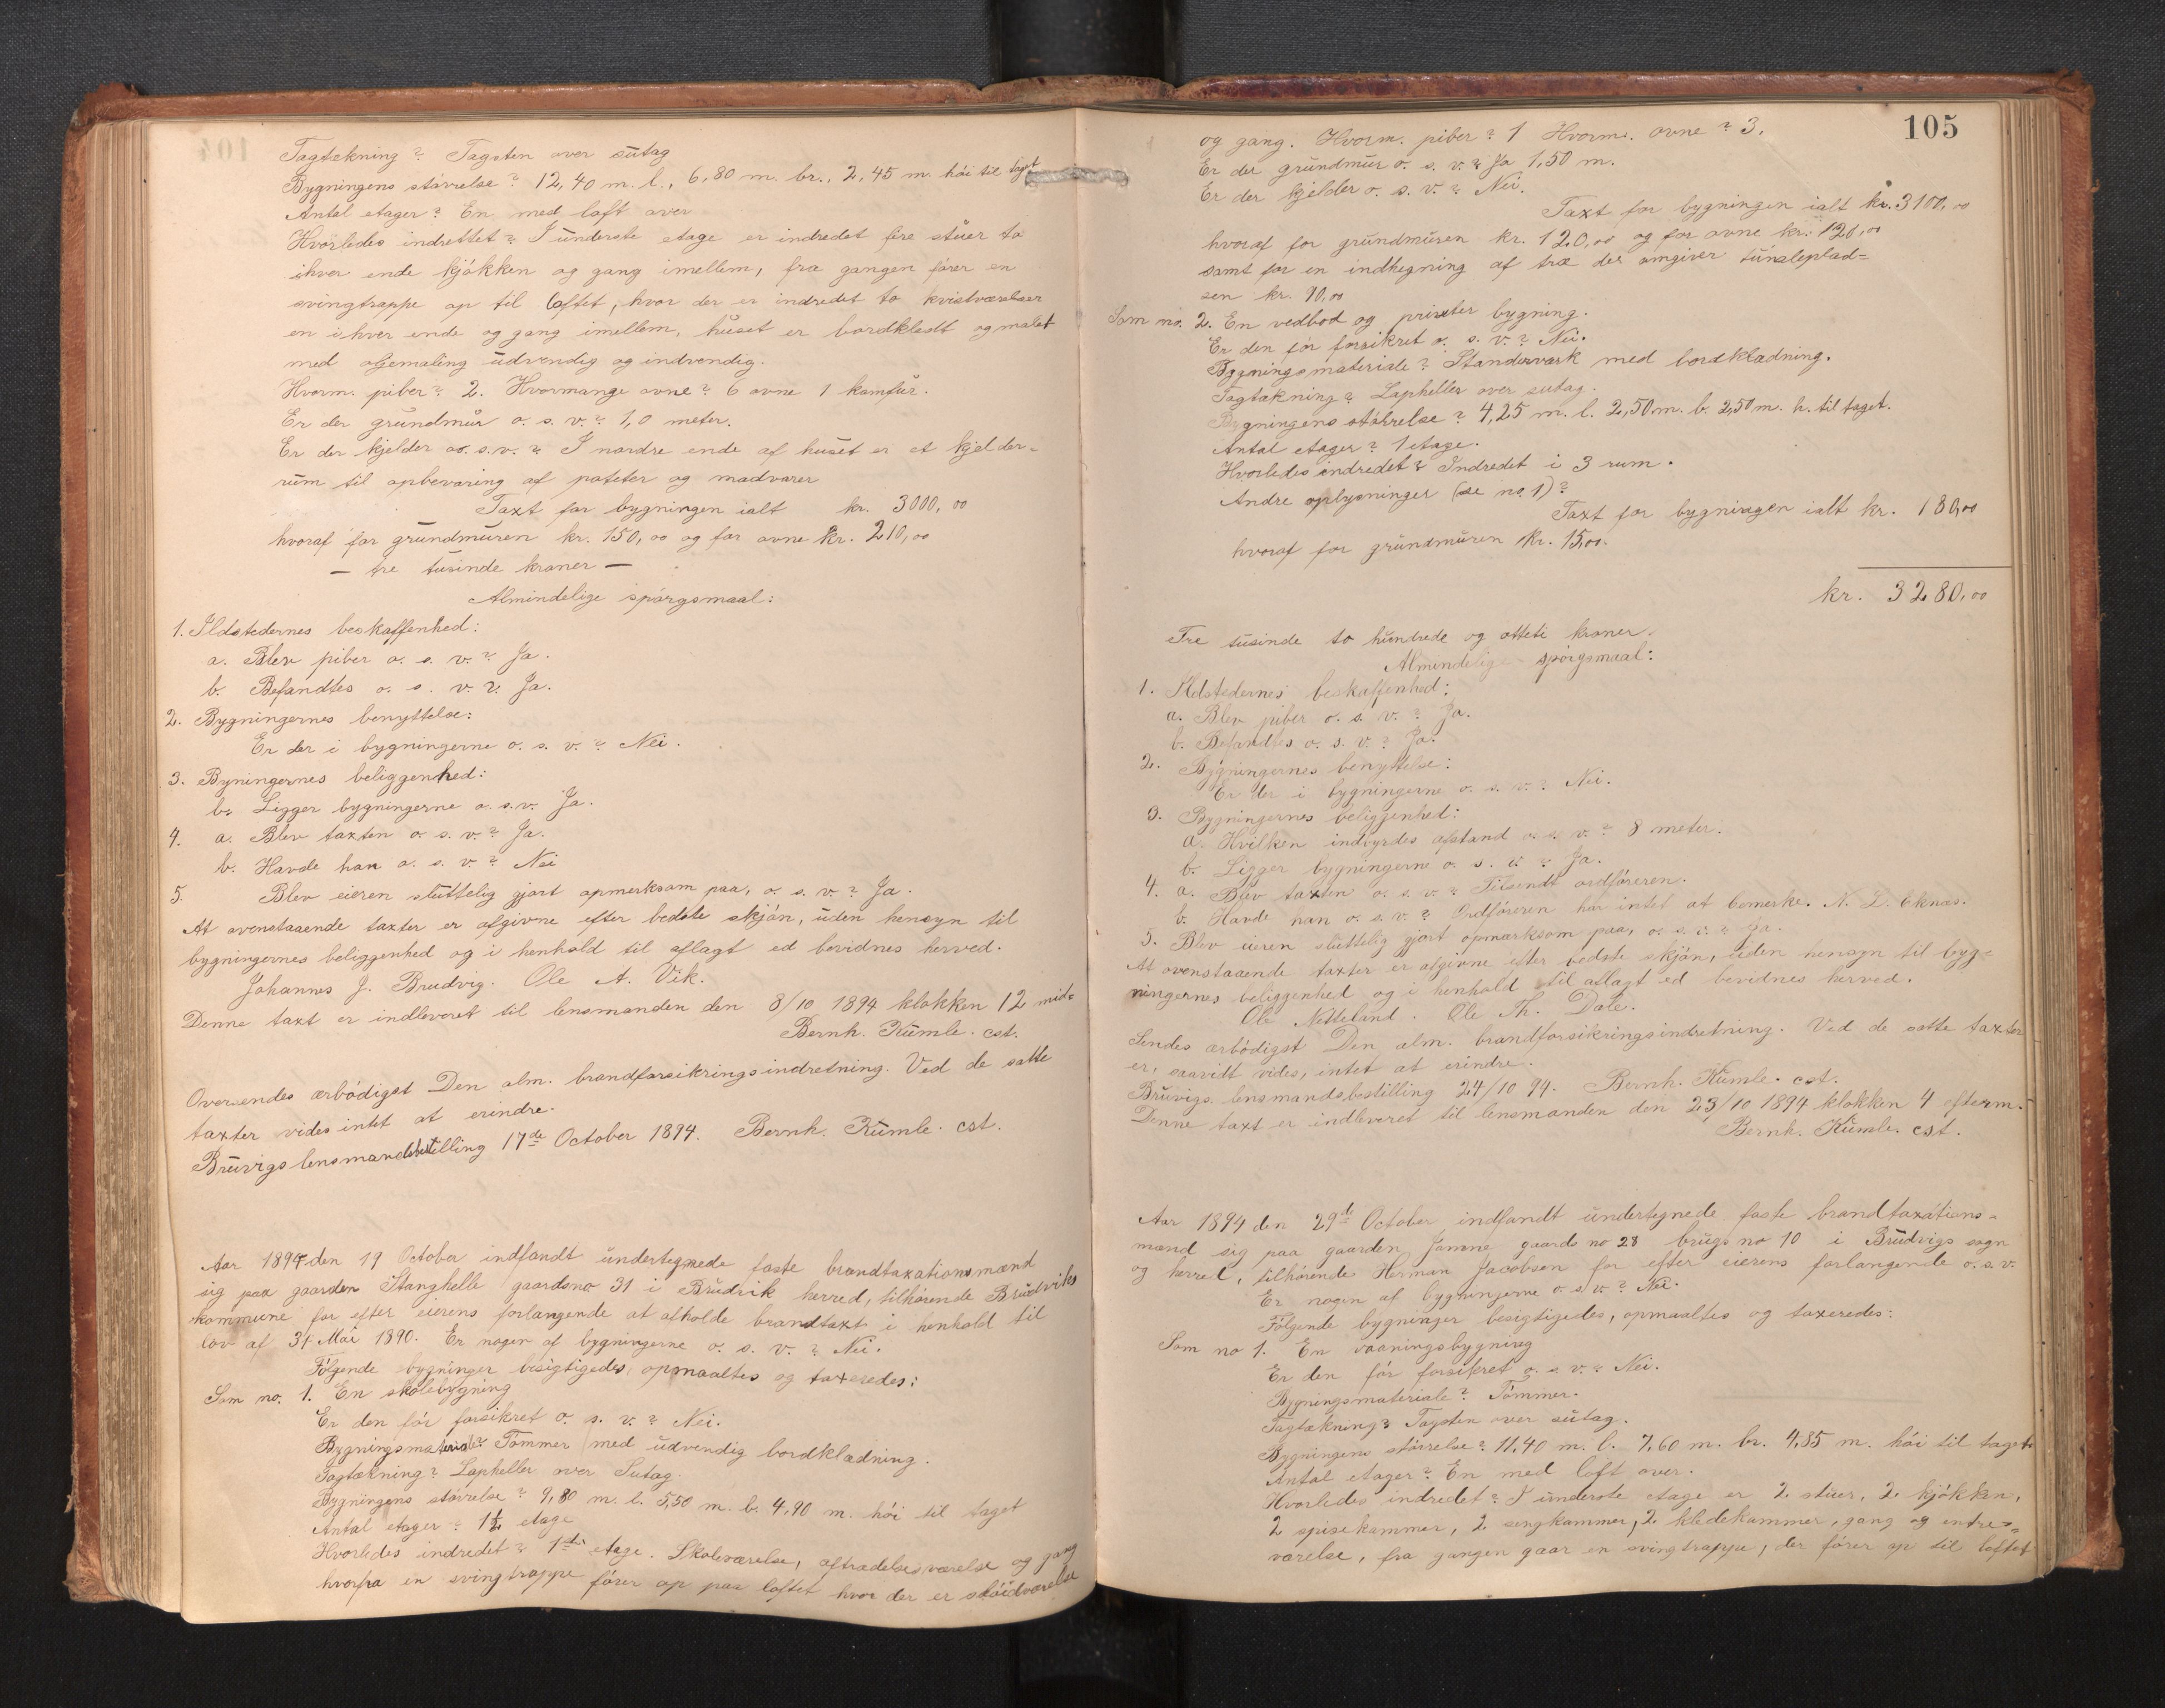 Tagtekning? Tagsten over sutag
Bygningens störrelse? 12,40 m. l., 6,80 m. br., 2,45 m. höi til taget
Antal etager? En med loft over
Hvorledes indrettet? I underste etage er indredet fire stuer to
i hver ende kjökken og gang imellem, fra gangen förer en
svingtrappe op til loftet, hvor der er indredet to kvistværelser
en i hver ende og gang imellem, huset er bordkledt og malet
med oljemaling udvendig og indvendig.
Hvorm. piber? 2. Hvormange ovne? 6 ovne 1 komfur.
Er der grundmur o. s. v.? 1,0 meter.
Er der kjelder o. s. v.? I nordre ende af huset er et kjelder-
rum til opbevaring af poteter og madvarer
Taxt for bygningen ialt kr. 3000,00
hvoraf for grundmuren kr. 150,00 og for ovne kr. 210,00
— tre tusinde kroner —
Almindelige spörgsmaal:
1. Ildstedernes beskaffenhed:
a. Blev piber o. s. v.? Ja.
b. Befandtes o. s. v.? Ja.
2. Bygningernes benyttelse:
Er der i bygningerne o. s. v.? Nei.
3. Byningernes beliggenhed:
b. Ligger bygningerne o. s. v. Ja.
4. a. Blev taxten o. s. v.? Ja.
b. Havde han o. s. v? Nei
5. Blev eieren sluttelig gjort opmerksom paa, o. s. v.? Ja.
At ovenstaaende taxter er afgivne efter bedste skjön, uden hensyn til
bygningernes beliggenhed og i henhold til aflagt ed bevidnes herved.
Johannes J. Brudvig. Ole A. Vik.
Denne taxt er indleveret til lensmanden den 8/10 1894 klokken 12 mid=
Bernh. Kumle. cst.
Oversendes ærbödigst Den alm. brandforsikringsindretning. Ved de satte
taxter vides intet at erindre.
Bruvigs lensmandsbestilling 17de October 1894. Bernh. Kumle. cst.
Aar 1894 den 19 October indfandt undertegnede faste brandtaxationsmænd
sig paa gaarden Stanghelle gaardsno 31 i Brudvik herred, tilhörende Brudviks
kommune for efter eierens forlangende at afholde brandtaxt i henhold til
lov af 31 Mai 1890. Er nogen af bygningerne o. s. v.? Nei.
Fölgende bygninger besigtigedes, opmaaltes og taxeredes:
Som no. 1. En skolebygning
Er den för forsikret o. s. v.? Nei.
Bygningsmateriale? Tömmer med udvendig bordklædning.
Tagtækning? Lapheller over Sutag.
Bygningens störrelse? 9,80 m. l. 5,50 m. b. 4,90 m. höi til taget
Antal etager? 1½ etage
Hvorledes indredet? 1ste etage. Skoleværelse, aftrædelsesværelse og gang
hvorfra en svingtrappe förer op paa loftet hvor der er slöidværelse
105
og gang. Hvorm. piber? 1 Hvorm. ovne? 3.
Er der grundmur o. s. v.? Ja 1,50 m.
Er der kjelder o. s. v.? Nei.
Taxt for bygningen ialt kr. 3100,00
hvoraf for grundmuren kr. 120,00 og for ovne kr. 120,00
samt for en indhegning af træ der omgiver
sen kr. 90,00
Som no. 2. En vedbod og priveter bygning.
Er den för forsikret o. s. v.? Nei.
Bygningsmateriale? Standerværk med bordklædning.
Tagtækning? Lapheller over sutag.
Bygningens störrelse? 4,25 m. l. 2,50 m. b. 2,50 m. h. til taget.
Antal etager? 1 etage.
Hvorledes indredet? Indredet i 3 rum.
Andre oplysninger (se no. 1)?
Taxt for bygningen ialt kr. 180,00
hvoraf for grundmuren kr. 15,00.
kr. 3280,00
Tre tusinde to hundrede og otteti kroner.
Almindelige spörgsmaal:
1. Ildstedernes beskaffenhed:
a. Blev piber o. s. v.? Ja.
b. Befandtes o. s. v.? Ja.
2. Bygningernes benyttelse:
Er der i bygningerne o. s. v.? Nei.
3. Bygningernes beliggenhed:
a. Hvilken indbyrdes afstand o. s. v.? 8 meter.
b. Ligger bygningerne o. s. v.? Ja.
4. a. Blev taxten o. s. v.? Tilsendt ordföreren.
b. Havde han o. s. v.? Ordföreren har intet at bemerke. A. L. Eknæs.
5. Blev eieren sluttelig gjort opmærksom paa, o. s. v.? Ja.
At ovenstaaende taxter er afgivne efter bedste skjön, uden hensyn til byg-
ningernes beliggenhed og i henhold til aflagt ed bevidnes herved.
Ole Netteland. Ole Th. Dale.
Sendes ærbödigst Den alm. brandforsikringsindretning. Ved de satte taxter
er, saavidt vides, intet at erindre.
Bruvigs lensmandsbestilling 24/10 94. Bernh. Kumle. cst.
Denne taxt er indleveret til lensmanden den 23/10 1894 klokken 4 efterm.
Bernh. Kumle. cst.
Aar 1894 den 29de October indfandt undertegnede faste brandtaxations-
mænd sig paa gaarden Jamne gaards no 28 brugs no 10 i Brudvigs sogn
og herred, tilhörende Herman Jacobsen for efter eierens forlangende o. s. v.
Er nogen af bygningerne o. s. v.? Nei.
Fölgende bygninger besigtigedes, opmaaltes og taxeredes:
Som no 1. En vaaningsbygning
Er den för forsikret o. s. v.? Nei.
Bygningsmateriale? Tömmer.
Tagtækning? Tagsten over sutag.
Bygningens störrelse? 11,40 m. l. 7,60 m. br. 4,85 m. höi til taget
Antal etager? En med loft over.
Hvorledes indredet? I underste etage er 2 stuer, 2 kjökken,
2 spisekammer, 2 sengkammer, 2 kledekammer, gang og entre-
værelse, fra gangen gaar en svingtrappe, der förer op til loftet